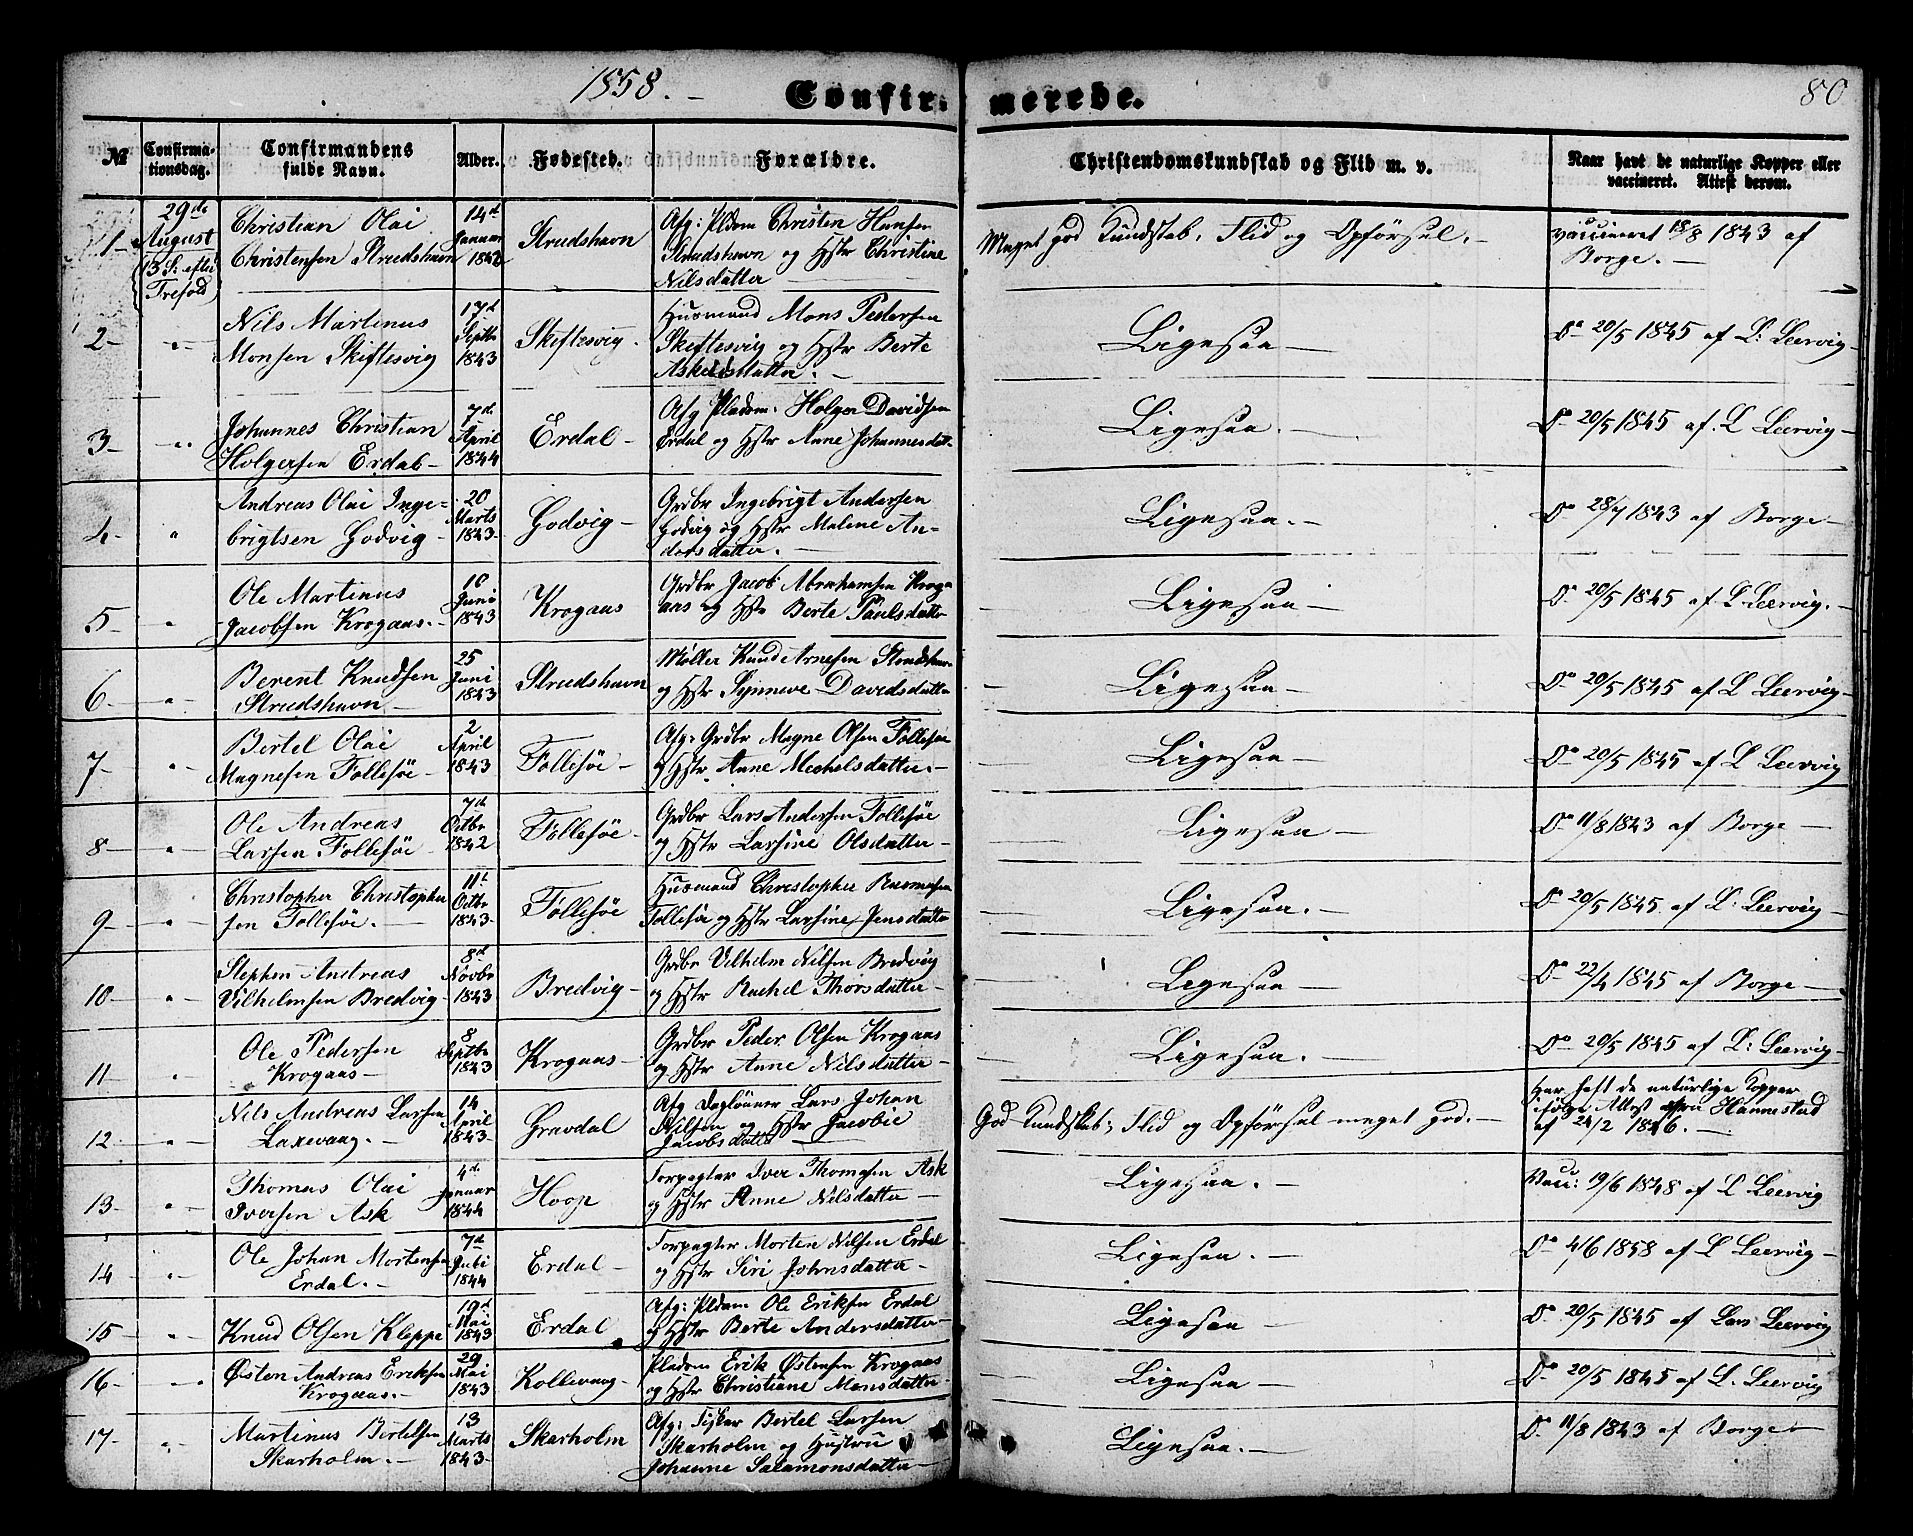 1858. –
Confir-
merede.
80
№
Confirma-
tionsdag.
Confirmandens
fulde Navn.
Alder.
Fødested.
Forældre.
Christendomskundskab og Flid m. v.
Naar havt de naturlige Kopper eller
vaccineret. Attest derom.
1-
29de
August
13 S: efter
Trefold
Christian Olai
Christensen Strudshavn
14d
Januar
1843
Strudshavn
Afg: Pldom Christen Hansen
Strudshavn og Hstr Christine
Nilsdatter
Meget god Kundskab, Flid og Opførsel. –
vaccineret 18/8 1843 af
Borge. –
2-
Nils Martinus
Monsen Skiftesvig
17d
Septbr
1843
Skeftesvig.
Husmand Mons Pedersen
Skeftesvig og Hstr Berte
Askeldsdatter. –
Ligesaa –
Do 20/5 1845 af L: Leervig –
3-
Johannes Christian
Holgersen Erdal –
7d
April
1844
Erdal –
Afg Pladsm: Holger Davidsen
Erdal og Hstr Anne Johannesdat-
Ligesaa. –
Do 20/5 1845 af. L Leervig –
4-
Andreas Olai Inge=
brigtsen Godvig –
20
Marts
1843-
Godvig –
Grdbr Ingebrigt Andersen
Godvig og Hstr Malene An-
dersdatter. –
Ligesaa. –
Do 28/7 1843 af Borge –
5-
Ole Martinus
Jacobsen Krogaas. –
16
Juni
1843
Krogaas
Grdbr Jacob Abrahamsen Krog-
aas og Hstr Berte Paulsdatter
Ligesaa –
Do 20/5 1845 af L. Leervig. –
6-
Berent Knudsen
Strudshavn –
25
Juni
1843
Strudshavn
Møller Knud Arnesen Strudshavn
og Hstr Synneve Davidsdatter
Ligesaa –
Do 20/5 1845 af L Leervig –
7-
Bertel Olai
Magnesen Follesøe –
2
April
1843
Follesøe –
Afg: Grdbr Magne Olsen Follesøe
og Hstr Anne Mechelsdatter. –
Ligesaa –
Do 20/5 1845 af L Leervig
8-
Ole Andreas
Larsen Follesøe –
7d
Octbr
1842
Follesøe –
Grdbr Lars Andersen Follesøe
og Hstr Larsine Olsdatter –
Ligesaa –
Do 11/8 1843 af Borge –
9-
Christopher Christopher
sen Follesøe. –
11t
Octbr
1843-
Follesøe
Husmand Christopher Rasmusen
Follesøe og Hstr Larsine Jensdatter
Ligesaa. –
Do 20/5 1845 af L: Leervig –
10-
Stephen Andreas
Vilhelmsen Bredvig –
8d
Novbr
1843
Bredvig –
Grdbr Vilhelm Nilsen Bredvig
og Hstr Rachel Thorsdatter –
Ligesaa –
Do 22/4 1845 af Borge –
11-
Ole Pedersen
Krogaas –
8
Septbr
1843
Krogaas –
Grdbr Peder Olsen Krogaas
og Hstr Anne Nilsdatter –
Ligesaa. –
Do 20/5 1845 af L: Leervig –
12-
Nils Andreas Larsen
Laxevaag. –
14
April
1843-
Gravdal
Afg Daglønner Lars Johan
Nilsen og Hstr Jacobie
Jacobsdatter –
God Kundskab; Flid og Opførsel meget god. –
Har haft de naturlige Kopper
ifølge Attest fra Hannestad
af 24/2 1846. –
13-
Thomas Olai
Iversen Ask
4de
Januar
1844
Hoop
Forpagter Iver Thomesen Ask
og Hstr Anne Nilsdatter –
Ligesaa. –
Vacc: 19/6 1848 af L Leervig
14-
Ole Johan Mortensen
Erdal. –
7d
Juli
1844
Erdal –
Forpagter Morten Nilsen Erdal
og Hstr Siri Johnsdatter –
Ligesaa. –
Do 4/6 1858 af L Leervig –
15-
Knud Olsen Kleppe
19d
Mai
1843
Erdal
Afg: Pldom Ole Eriksen Erdal
og Hstr Berte Andersdatter –
Ligesaa –
Do 20/5 1845 af Lars Leervig
16-
Østen Andreas Eriksen
Krogaas. –
29
Mai
1843
Kollevaag –
Pladsm Erik Østensen Krogaas
og Hstr Christiane Monsdatter –
Ligesaa –
Do 20/5 1845 af L. Leervig
17-
Martinus Bertelsen
Skarholm. –
13
Marts
1843-
Skarholm
Afg: Fisker Bertel Larsen
Skarholm og Hustru
Johanne Salamonsdatter –
Ligesaa. –
Do 11/8 1843 af Borge –